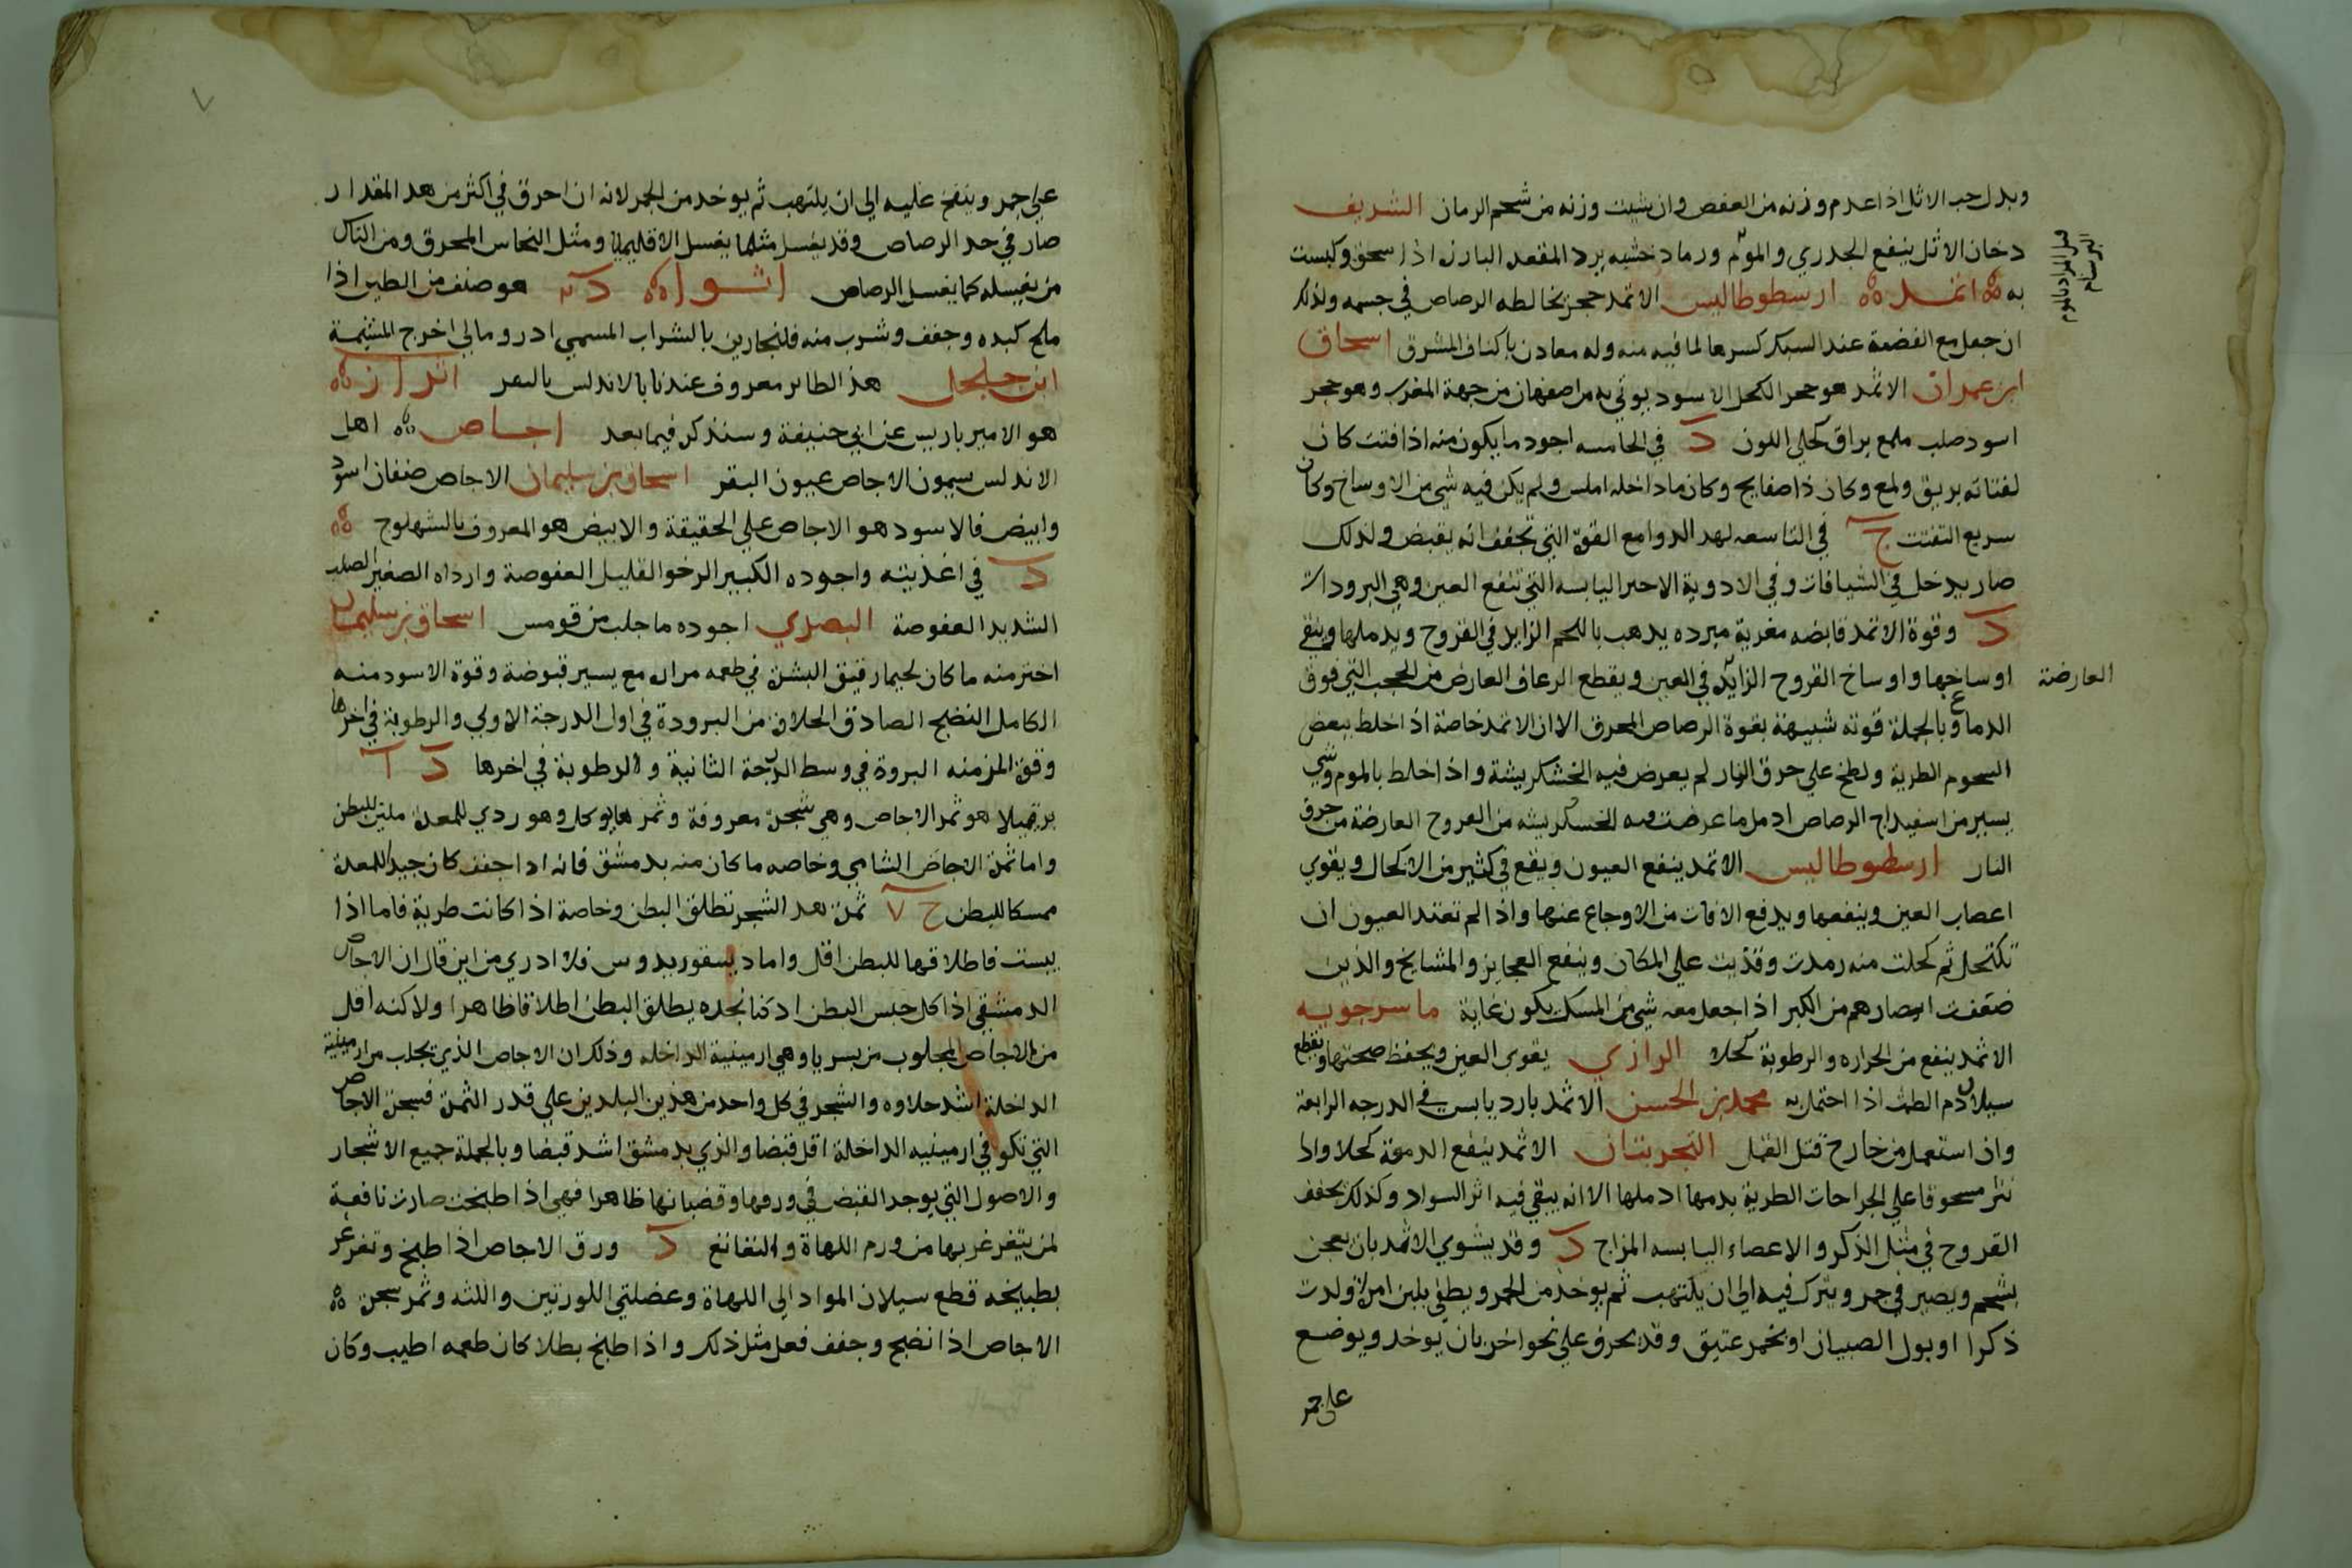 وبدل حب الاثل اذا عدم وزنه من العفص وان شيت وزنه من شحم الرمان الشريف
دخان الاثل ينفع الجدري والموم ورماد خشبه يرد المقعد البارزة اذا سحق وكبست
به اثمد ارسطوطاليس الاثمد حجر يخالطه الرصاص في جسمه ولذلك
ان جعل مع الفضة عند السبك كسرها لما فيه منه وله معادن باكناف المشرق اسحاق
ابن عمران الاثمد هو حجر الكحل الاسود يوتي به من اصفهان من جهة المغرب وهو حجر
اسود صلب ملمع براق كحلي اللون د في الخامسه اجود ما يكون منه اذا فتت كان
لفتاته بريق ولمع وكان ذا صفايح وكان ما داخله املس ولم يكن فيه شي من الاوساخ وكان
سريع التفتت ج في التاسعه لهد الدوا مع القوة التي تجفف انه يقبض ولذلك
صار يدخل في الشيافات وفي الادوية الاخر اليابسه التي تنفع العين وهي البرودات
د وقوة الاثمد قابضه مغرية مبرده يدهب باللحم الزايد في القروح ويدملها وينقي
اوساخها واوساخ القروح الزايد في العين ويقطع الرعاف العارض من الحجب التي فوق
العارضة
الدماغ وبالجملة قوته شبيهة بقوة الرصاص المحرق الا ان الاثمد خاصة اذا خلط ببعض
السحوم الطرية ولطخ علي حرق النار لم يعرض فيه الخشكريشة واذا خلط بالموم وشي
يسير من اسفيداج الرصاص ادمل ما عرضت فيه الخسكريشه من القروح العارضة من حرق
النار ارسطوطاليس الاثمد ينفع العيون ويقع في كثير من الاكحال ويقوي
اعصاب العين وينفعها ويدفع الافات من الاوجاع عنها واذا لم تعتد العيون ان
تكتحل ثم كحلت منه رمدت وقذيت علي المكان وينفع العجايز والمشايخ والذين
ضعفت ابصارهم من الكبر اذا جعل معه شي من المسك يكون غاية ماسرجويه
الاثمد ينفع من الحراره والرطوبة كحلا الرازي يقوي العين ويحفظ صحتها ويقطع
سيلان دم الطمث اذا احتمل به محمد بن الحسن الاثمد بارد يابس في الدرجه الرابعة
واذا استعمل من خارج قتل القمل التجربتان الاثمد ينفع الدمعة كحلا واذا
نثر مسحوقا علي الجراحات الطرية بدمها ادملها الا انه يبقي فيه اثر السواد وكذلك يجفف
القروح في مثل الذكر والاعضاء اليابسه المزاج د وقد يشوي الاثمد بان يعجن
بشحم ويصير في جمر ويترك فيه الي ان يلتهب ثم يوخذ من الجمر ويطفي بلبن امراة ولدت
ذكرا او بول الصبيان او بخمر عتيق وقد يحرق علي نحو اخر بان يوخد ويوضع
علي جمر
علي جمر وينفخ عليه الي ان يلتهب ثم يوخد من الجمر لانه ان احرق في اكثر من هد المقدار
صار في حد الرصاص وقد يغسل مثلما يغسل الاقليميا ومثل النحاس المحرق ومن الناس
من يغسله كما يغسل الرصاص اثوار هو صنف من الطير اذا
ملح كبده وجفف وشرب منه فلنجارين بالشراب المسمي ادرومالي اخرج المشيمة
ابن جلجل هذا الطائر معروف عندنا بالاندلس اثرار
هو الامير باريس عن ابي حنيفة وسنذكر فيما بعد اجاص اهل
الاندلس يسمون الاجاص عيون البقر اسحاق بن سليمان الاجاص صنفان اسود
وابيض فالاسود هو الاجاص علي الحقيقة والابيض هو المعروف بالشهلوج
د في اغذيته واجوده الكبير الرخو القليل العفوصة وارداه الصغير الصلب
الشديد العفوصة البصري اجوده ما جلب من قومس اسحاق بن سليمان
اختر منه ما كان لحيما رقيق البشرة في طعمه مرارة مع يسير قبوضة وقوة الاسود منه
الكامل النضج الصادق الحلاوة من البرودة في اول الدرجة الاولي والرطوبة في اخرها
وقوة المز منه البروة في وسط الدرجة الثانية والرطوبة في اخرها د ا
هو ثمر الاجاص وهي شجرة معروفة وثمرها يوكل وهو ردي للمعدة ملين للبطن
واما ثمرة الاجاص الشامي وخاصه ما كان منه بدمشق فانه ادا جفف كان جيدا للمعدة
ممسكا للبطن ج ٧ ثمرة هد الشجر تطلق البطن وخاصة اذا كانت طرية فاما اذا
يبست فاطلاقها للبطن اقل واما ديسقوريدوس فلا ادري من اين قال ان الاجاص
الدمشقي اذا اكل حبس البطن اد كنا نجده يطلق البطن اطلاقا ظاهرا ولاكنه اقل
من الاجاص المجلوب من يسريا وهي ارمينية الداخله وذلك ان الاجاص الذي يجلب من ارمينية
الداخلة اشد حلاوه والشجر في كل واحد من هذين البلدين علي قدر الثمرة فشجرة الاجاص
التي تكون في ارمينيه الداخلة اقل قبضا والذي بدمشق اشد قبضا وبالجملة جميع الاشجار
والاصول التي يوجد القبض في ورقها وقضبانها ظاهرا فهي اذا طبخت صارت نافعة
لمن يتغرغر بها من ورم اللهاة والنغانغ د ورق الاجاص اذا طبخ وتغرغر
بطبيخه قطع سيلان المواد الي اللهاة وعضلتي اللوزتين واللثه وثمر شجرة
الاجاص اذا نضج وجفف فعل مثل ذلك واذا طبخ بطلا كان طعمه اطيب وكان